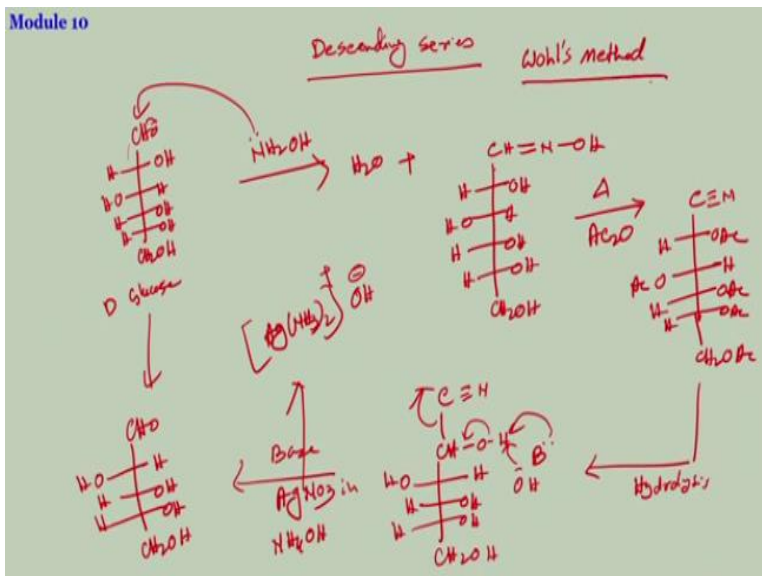 Module 10
Descending series Wohl's Method
CHO
H OH
HO H
H OH
H OH
CH2OH
D Glucose
NH2OH
H2O +
CH=N-OH
H OH
HO H
H OH
H OH
CH2OH
Δ
AC2O
C≡N
H OAc
AcO H
H OAc
H OAc
CH2OAc
Hydrolysis
C≡N
CH-O-H
B:
OH
HO H
H OH
H OH
CH2OH
[Ag(NH3)2]+ OH
Base
AgNO3 in
NH4OH
CHO
HO H
H OH
H OH
CH2OH